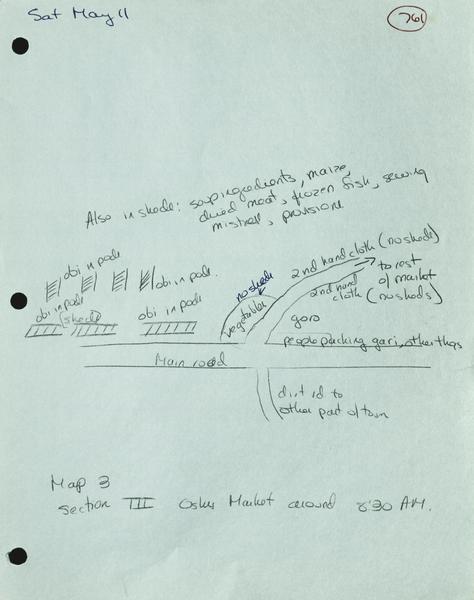 Sat May 11
761
Also in sheds: soup ingredients, maize,
dried meat, frozen fish, sewing
mistress, provisions
obi in pods
obi in pods.
obi in pods
sheds
obi in pods
no sheds
vegetables
2nd hand cloth (no sheds)
to rest
of market
2nd hand
cloth (no sheds)
goro
people packing gari, other things
Main road
dirt rd to
other part of town
Map 3
Section III Market around 8:30 AM.